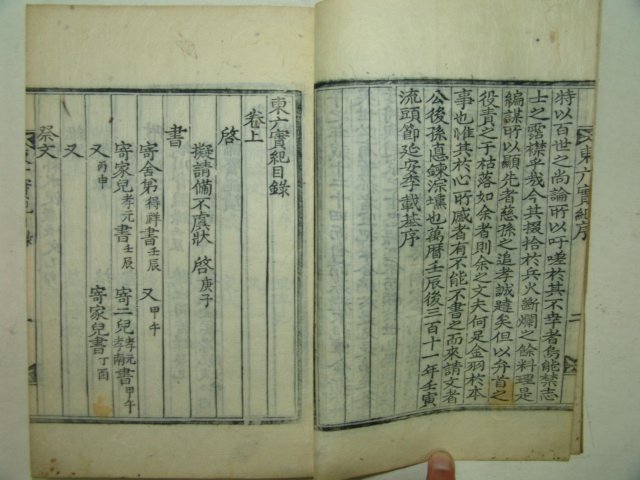 特以百世之尚論所以吁嗟於其不幸者烏能禁志
士之霑襟乎哉今其掇拾於兵火斷爛之餘料理是
編謀所以顯先者慈孫之追孝誠韙矣但以弁首之
役責之于枯落如余者則余之文夫何足金羽於本
事也惟其於心所感者有不能不書之而來請文者
公後孫悳鍊深壎也萬曆壬辰後三百十一年壬寅
流頭節延安李載基序
東六實紀序
二
東六實紀目錄
卷上
啓
擬請備不虞狀 啓 庚子
書
寄舍弟 得群 書 壬辰 又 甲午
寄家兒 孝元 書 壬辰 寄二兒 孝元 孝南 書 甲午
又 丙申 寄家兒書 丁酉
又
祭文